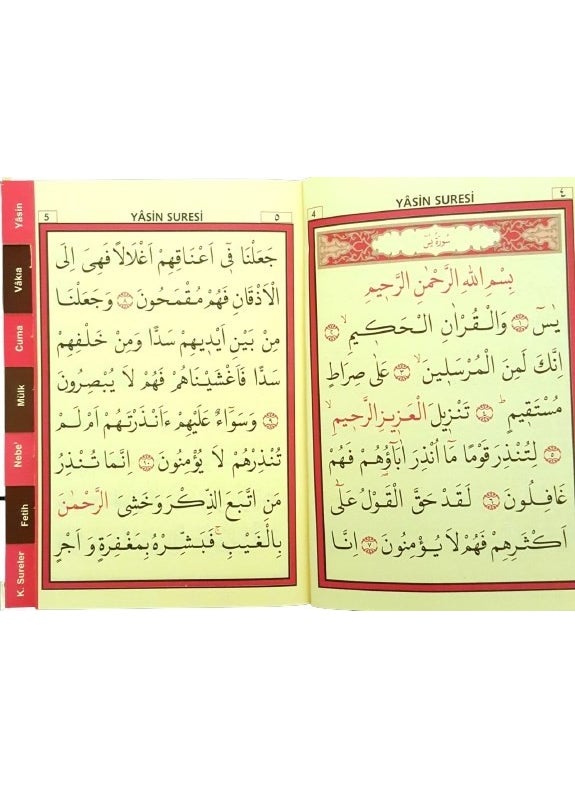 ٤
YÂSİN SURESİ
4
سُورَةُ يٰسٓ
بِسْمِ اللّٰهِ الرَّحْمٰنِ الرَّحٖيمِ
يٰسٓ ﴿١﴾ وَالْقُرْاٰنِ الْحَكٖيمِۙ ﴿٢﴾
اِنَّكَ لَمِنَ الْمُرْسَلٖينَۙ ﴿٣﴾ عَلٰى صِرَاطٍ
مُسْتَقٖيمٍۜ ﴿٤﴾ تَنْزٖيلَ الْعَزٖيزِ الرَّحٖيمِۙ
﴿٥﴾ لِتُنْذِرَ قَوْمًا مَٓا اُنْذِرَ اٰبَٓاؤُ۬هُمْ فَهُمْ
غَافِلُونَ ﴿٦﴾ لَقَدْ حَقَّ الْقَوْلُ عَلٰٓى
اَكْثَرِهِمْ فَهُمْ لَا يُؤْمِنُونَ ﴿٧﴾ اِنَّا
5
YÂSİN SURESİ
٥
جَعَلْنَا فٖٓي اَعْنَاقِهِمْ اَغْلَالًا فَهِيَ اِلَى
الْاَذْقَانِ فَهُمْ مُقْمَحُونَ ﴿٨﴾ وَجَعَلْنَا
مِنْ بَيْنِ اَيْدٖيهِمْ سَدًّا وَمِنْ خَلْفِهِمْ
سَدًّا فَاَغْشَيْنَاهُمْ فَهُمْ لَا يُبْصِرُونَ
﴿٩﴾ وَسَوَٓاءٌ عَلَيْهِمْ ءَاَنْذَرْتَهُمْ اَمْ لَمْ
تُنْذِرْهُمْ لَا يُؤْمِنُونَ ﴿١٠﴾ اِنَّمَا تُنْذِرُ
مَنِ اتَّبَعَ الذِّكْرَ وَخَشِيَ الرَّحْمٰنَ
بِالْغَيْبِۚ فَبَشِّرْهُ بِمَغْفِرَةٍ وَ اَجْرٍ
Yâsin
Vâkıa
Cuma
Mülk
Nebe'
Fetih
K. Sureler